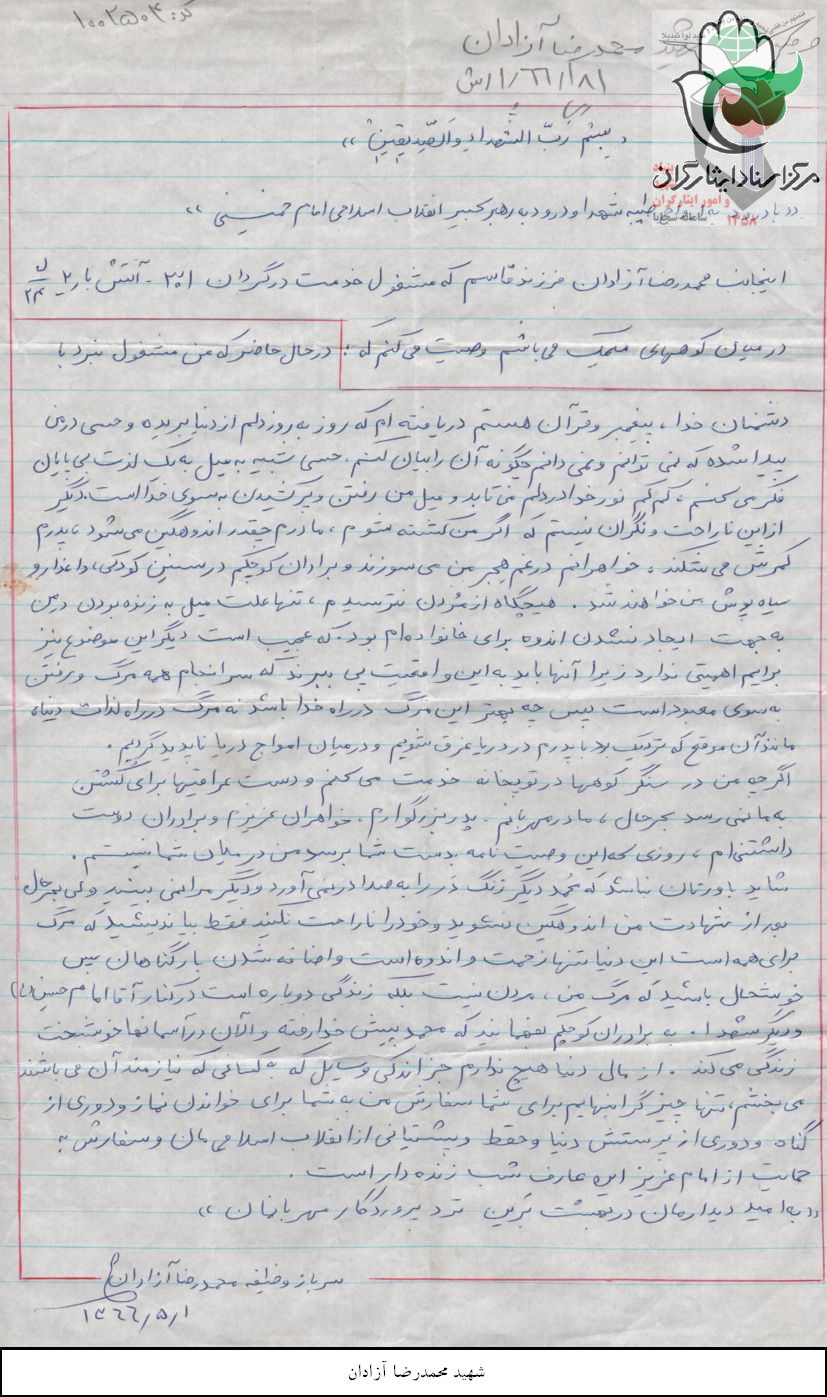 کد: ۱۰۰۲۵۰۴
شهید محمدرضا آزادان
مرکز اسناد ایثارگران
و امور ایثارگران
سامانه سجایا
۱۳۵۸
«بسم رب الشهداء والصدیقین»
طیبه شهدا و درود به رهبر کبیر انقلاب اسلامی امام خمینی»
اینجانب محمدرضا آزادان فرزند قاسم که مشغول خدمت در گردان
در میان کوههای می‌باشم وصیت می‌کنم که: در حال حاضر که من مشغول نبرد با
دشمنان خدا، پیغمبر و قرآن هستم دریافته‌ام که روز به روز دلم از دنیا بریده و حسی در من
پیدا شده که نمی توانم و نمی دانم چگونه آن را بیان کنم. حسی شبیه به میل به یک لذت بی پایان
فکر می‌کنم، کم‌کم نور خدا در دلم می تابد و میل من رفتن و پر کشیدن به سوی خدا است. دیگر
از این ناراحت و نگران نیستم که اگر من کشته شوم، مادرم چقدر اندوهگین می‌شود، پدرم
کمرش می‌شکند، خواهرانم در غم هجر من می سوزند و برادران کوچکم در سنین کودکی، داغدار و
سیاه پوش من خواهند شد. هیچگاه از مُردن نترسیدم، تنها علت میل به زنده بودن در من
به جهت ایجاد نشدن اندوه برای خانواده‌ام بود. که عجیب است دیگر این موضوع نیز
برایم اهمیتی ندارد زیرا آنها باید به این واقعیت پی ببرند که سرانجام همه مرگ و رفتن
به سوی معبود است پس چه بهتر این مرگ در راه خدا باشد نه مرگ در راه لذات دنیا،
مانند آن موقع که نزدیک بود با پدرم در دریا غرق شویم و در میان امواج دریا ناپدید گردیم.
اگر چه من در سنگر کوهها در توپخانه خدمت می کنم و دست عراقیها برای کشتن
به ما نمی رسد بهرحال، مادر مهربانم. پدر بزرگوارم، خواهران عزیزم و برادران دوست
داشتنی‌ام، روزی که این وصیت نامه بدست شما برسد من در میان شما نیستم.
شاید باورتان نباشد که محمد دیگر زنگ در را به صدا در نمی آورد و دیگر مرا نمی بینید ولی بهرحال
بعد از شهادت من اندوهگین نشوید و خود را ناراحت نکنید فقط بیاندیشید که مرگ
برای همه است این دنیا تنها زحمت و اندوه است و اضافه شدن بار گناهان پس
خوشحال باشید که مرگ من، مردن نیست بلکه زندگی دوباره است در کنار آقا امام حسین(ع)
و دیگر شهدا. به برادران کوچکم بفهمانید که محمد پیش خدا رفته و الآن در آسمانها خوشبخت
زندگی می کند. از مال دنیا هیچ ندارم جز اندکی وسایل که به کسانی که نیازمند آن می باشند
می بخشم، تنها چیز گرانبهایم برای شما سفارش من به شما برای خواندن نماز و دوری از
گناه و دوری از پرستش دنیا و حفظ و پشتیبانی از انقلاب اسلامی مان و سفارش به
حمایت از امام عزیز این عارف شب زنده دار است.
«به امید دیدارمان در بهشت برین نزد پروردگار مهربانمان»
سرباز وظیفه محمدرضا آزادان
۱۳۶۶/۵/۱
شهید محمدرضا آزادان